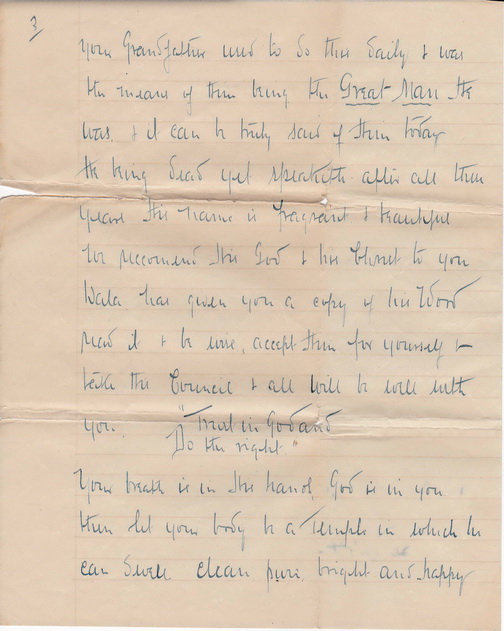 3
your Grandfather used to do this daily & was
the means of him being the Great Man He
was. & it can be truly said of Him today
He being dead yet speaketh after all these
years His name is fragrant & beautiful
we recommend His God & his to you
has given you a copy of his Word
read it & be wise, accept Him for yourself &
take His Council & all will be well with
you. "Trust in God and
Do the right"
Your breath is in His hand, God is in you
then let your body be a Temple in which He
can dwell clean, pure, bright and happy